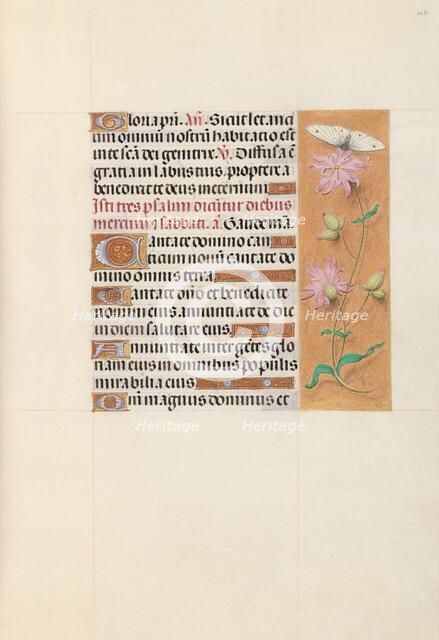 Gloria pr̃i. Añ. Sicut let. in ci
tam omnium nostrũ habitatio est
in te sc̃a dei genitrix. V̵. Diffusa ẽ
gratia in labiis tuis. propterea
benedixit te deus in eternum
Isti tres psalmi dicũtur diebus
mercurii ⁊ sabbati. a. Gaude ma.
Cantate domino can
ticum nouũ cantate do
mino omnis terra
Cantate dño et benedicite
nomini eius annuntiate de die
in diem salutare eius
Annuntiate inter gẽtes glo
riam eius in omnibus populis
mirabilia eius
Qm̃ magnus dominus et
Heritage
Heritage
Heritage
Heritage
Heritage
Heritage